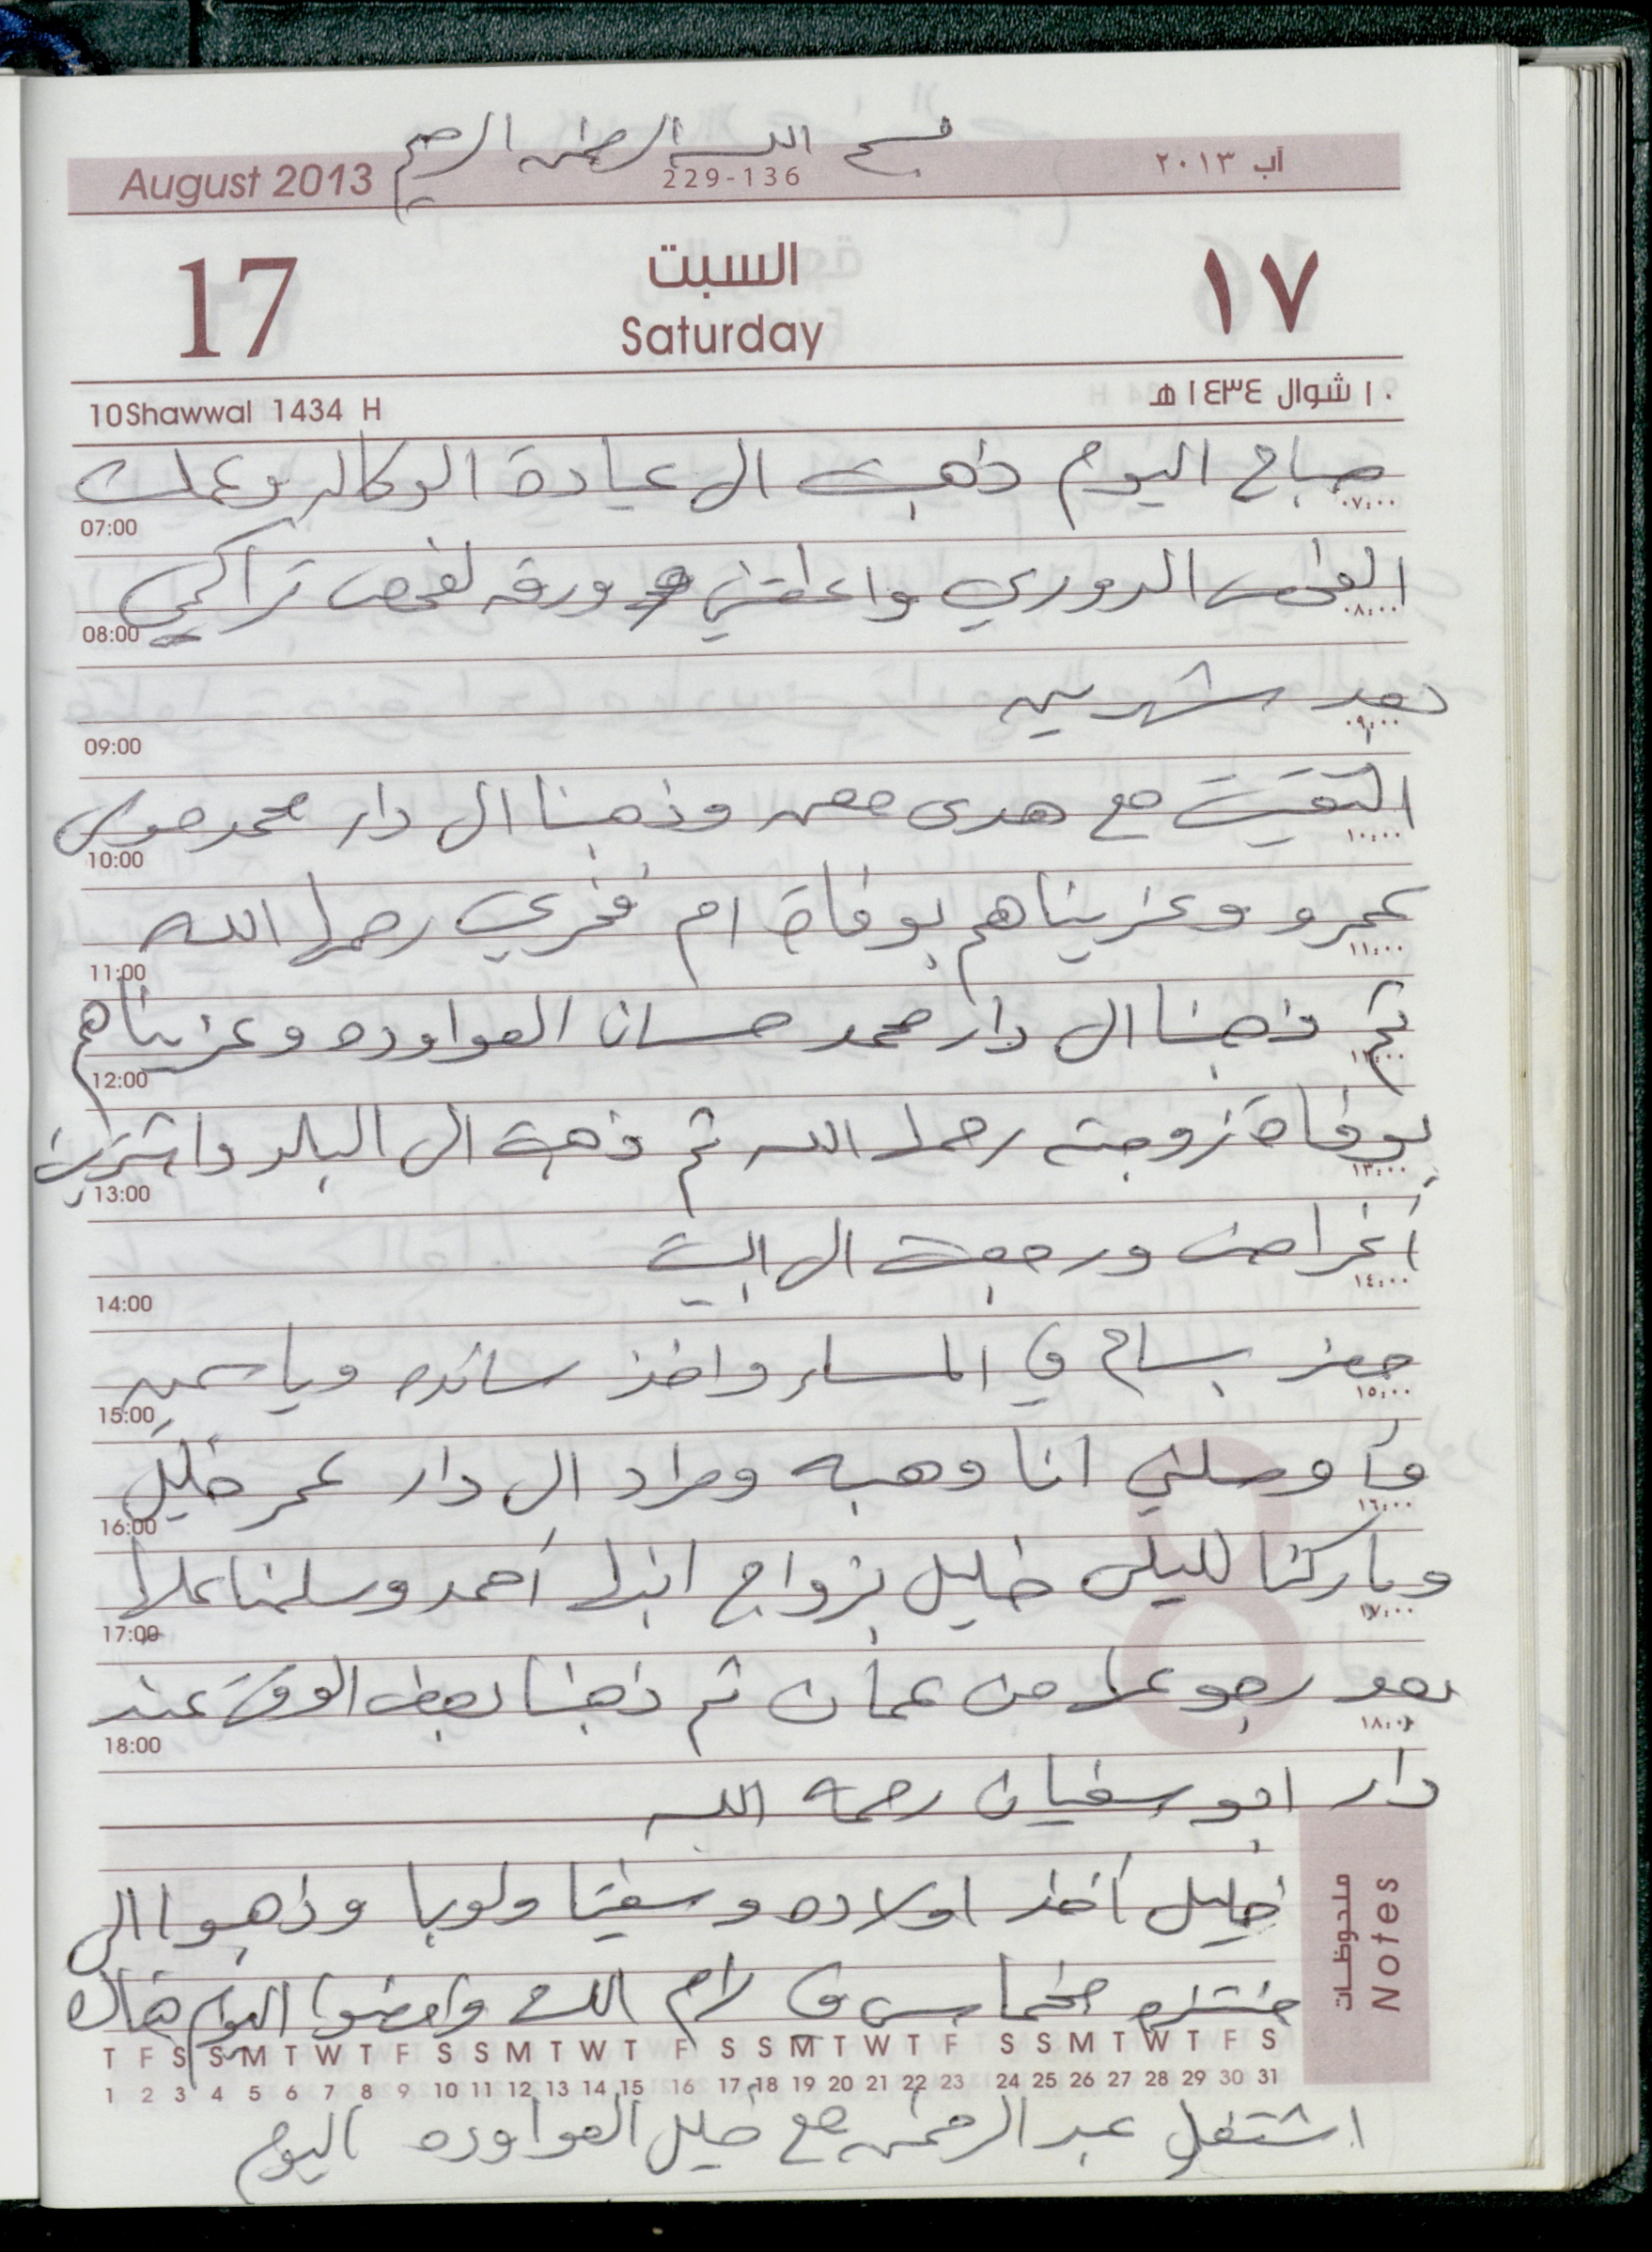 بسم الله الرحمن الرحيم
August 2013 229-136 آب ٢٠١٣
17 السبت ١٧
Saturday
10Shawwal 1434 H ١٠ شوال ١٤٣٤ هـ
صباح اليوم ذهبت الى عيادة الوكاله وعملت
٠٧:٠٠ 07:00
الفحص الدوري واعطتني ورقه لفحص تراكمي
٠٨:٠٠ 08:00
بعد شهرين
٠٩:٠٠ 09:00
التقيت مع هدى معن وذهبنا الى دار محمد موسى
١٠:٠٠ 10:00
عمرو وعزيناهم بوفاة ام فخري رحمها الله
١١:٠٠ 11:00
ثم ذهبنا الى دار محمد حسان العواوده وعزيناهم
١٢:٠٠ 12:00
بوفاة زوجته رحمها الله ثم ذهبت الى البلد واشتريت
١٣:٠٠ 13:00
أغراض ورجعت الى البيت
١٤:٠٠ 14:00
حضر بسام في المساء واخذ سانده وياسمين
١٥:٠٠ 15:00
وأوصلني انا وهبه ومراد الى دار عمر خليل
١٦:٠٠ 16:00
وباركنا لليلى خليل بزواج ابنها أحمد وسلمنا عليها
١٧:٠٠ 17:00
بعد رجوعها من عمان ثم ذهبنا بعض الوقت عند
١٨:٠٠ 18:00
دار ابو سفيان رحمه الله
خليل أخذ اولاده وسفيتا ولوبا وذهبوا الى
منتزه مخماس في رام الله وامضوا اليوم هناك
ملحوظات Notes
T F S S M T W T F S S M T W T F S S M T W T F S S M T W T F S
1 2 3 4 5 6 7 8 9 10 11 12 13 14 15 16 17 18 19 20 21 22 23 24 25 26 27 28 29 30 31
اشتغل عبد الرحمن مع خليل العواوده اليوم